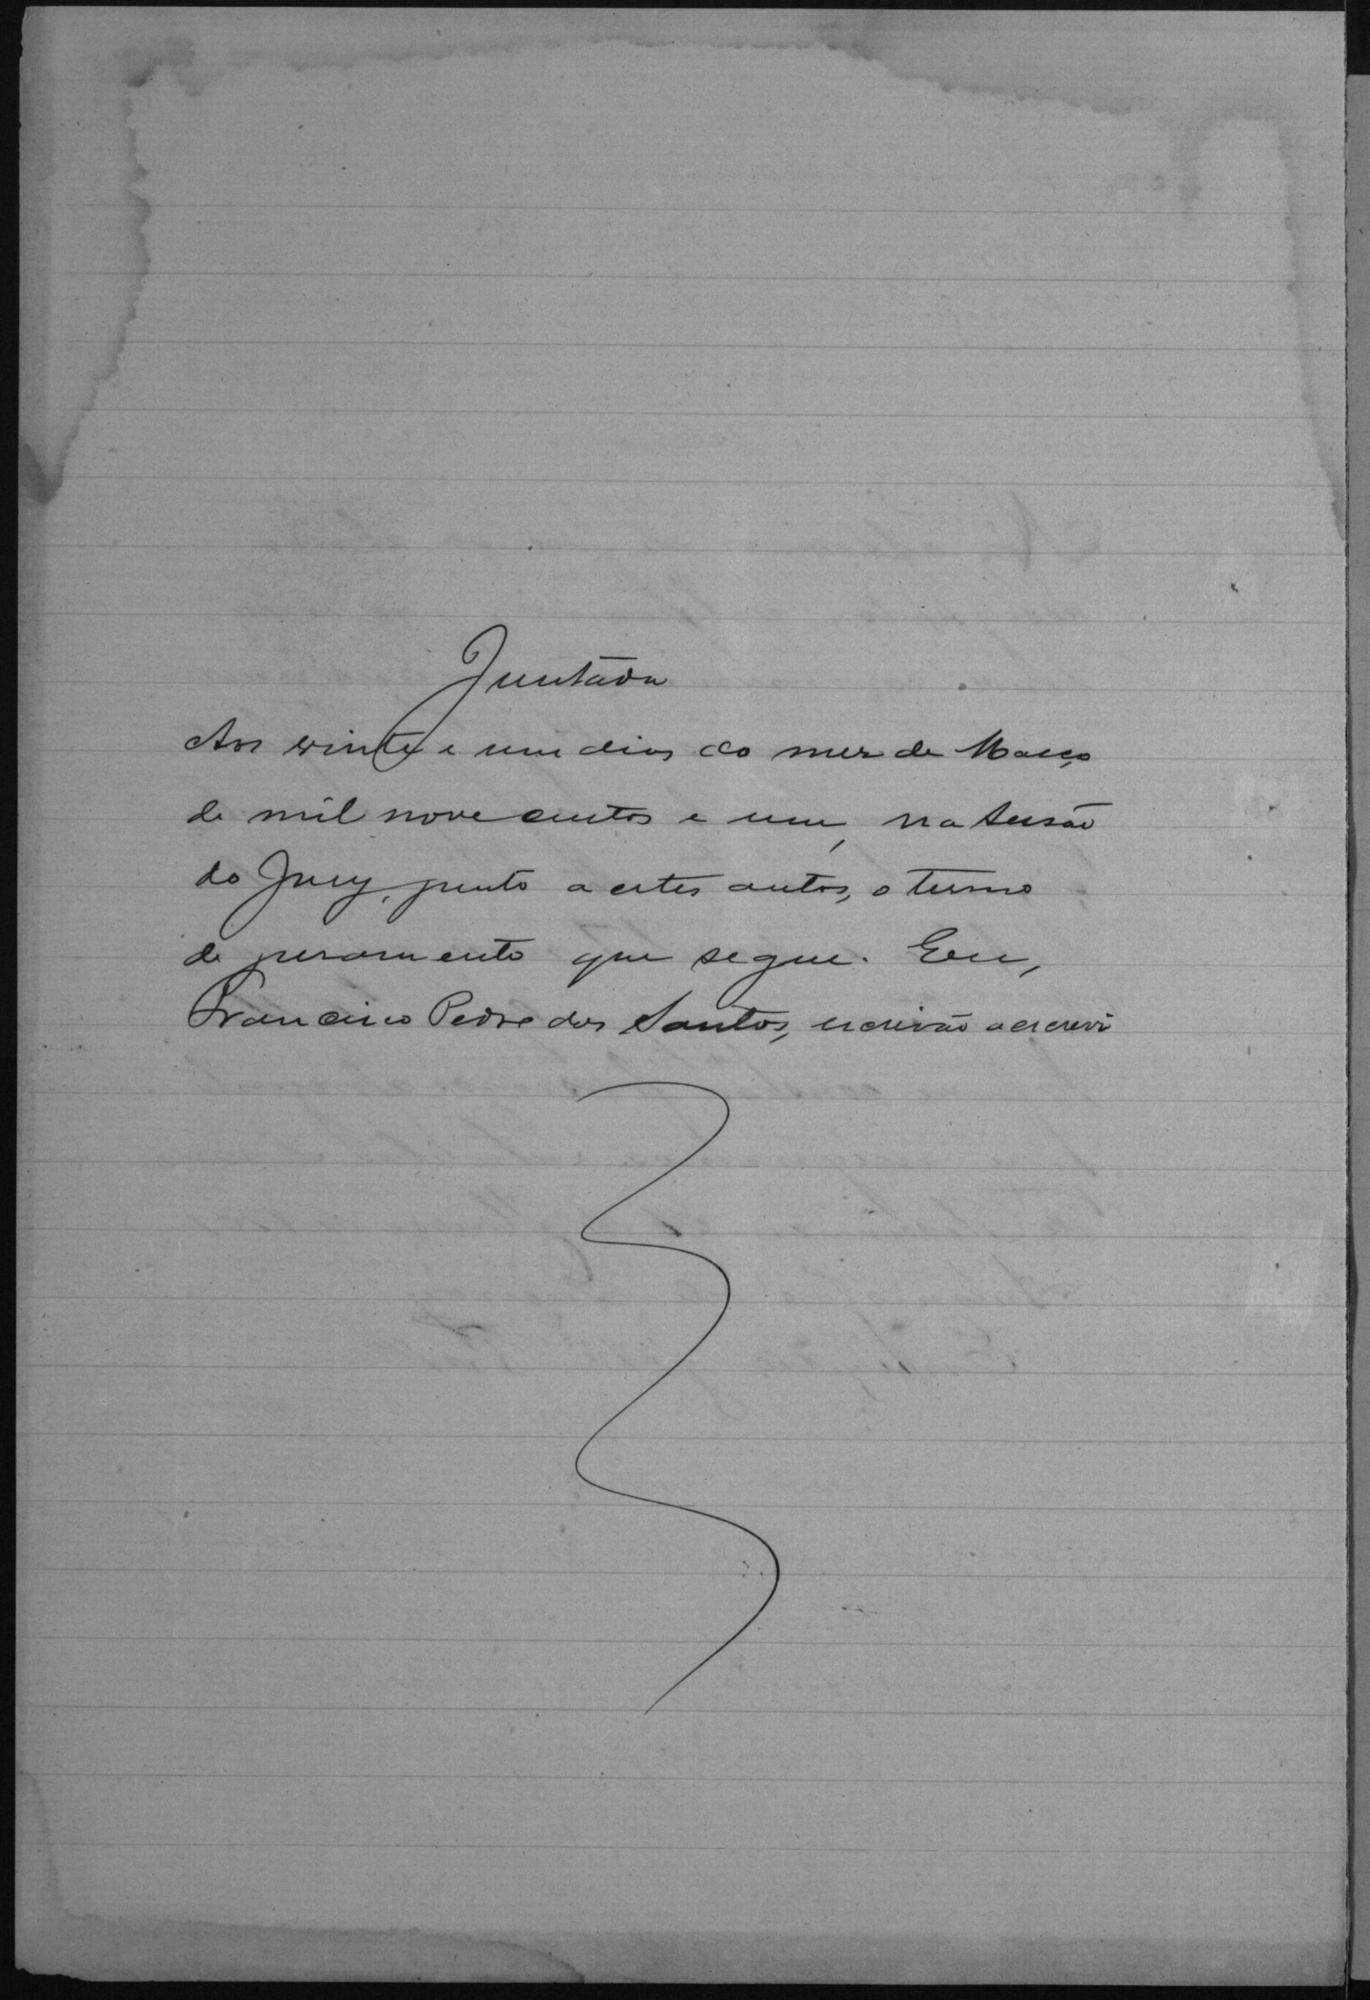 Juntada
Aos vinte e um dias do mez de Março
de mil nove centos e um, na sessão
do Jury, junto a estes autos, o termo
de juramento que segue. Eu,
Francisco Pedro dos Santos, escrivão o escrevi